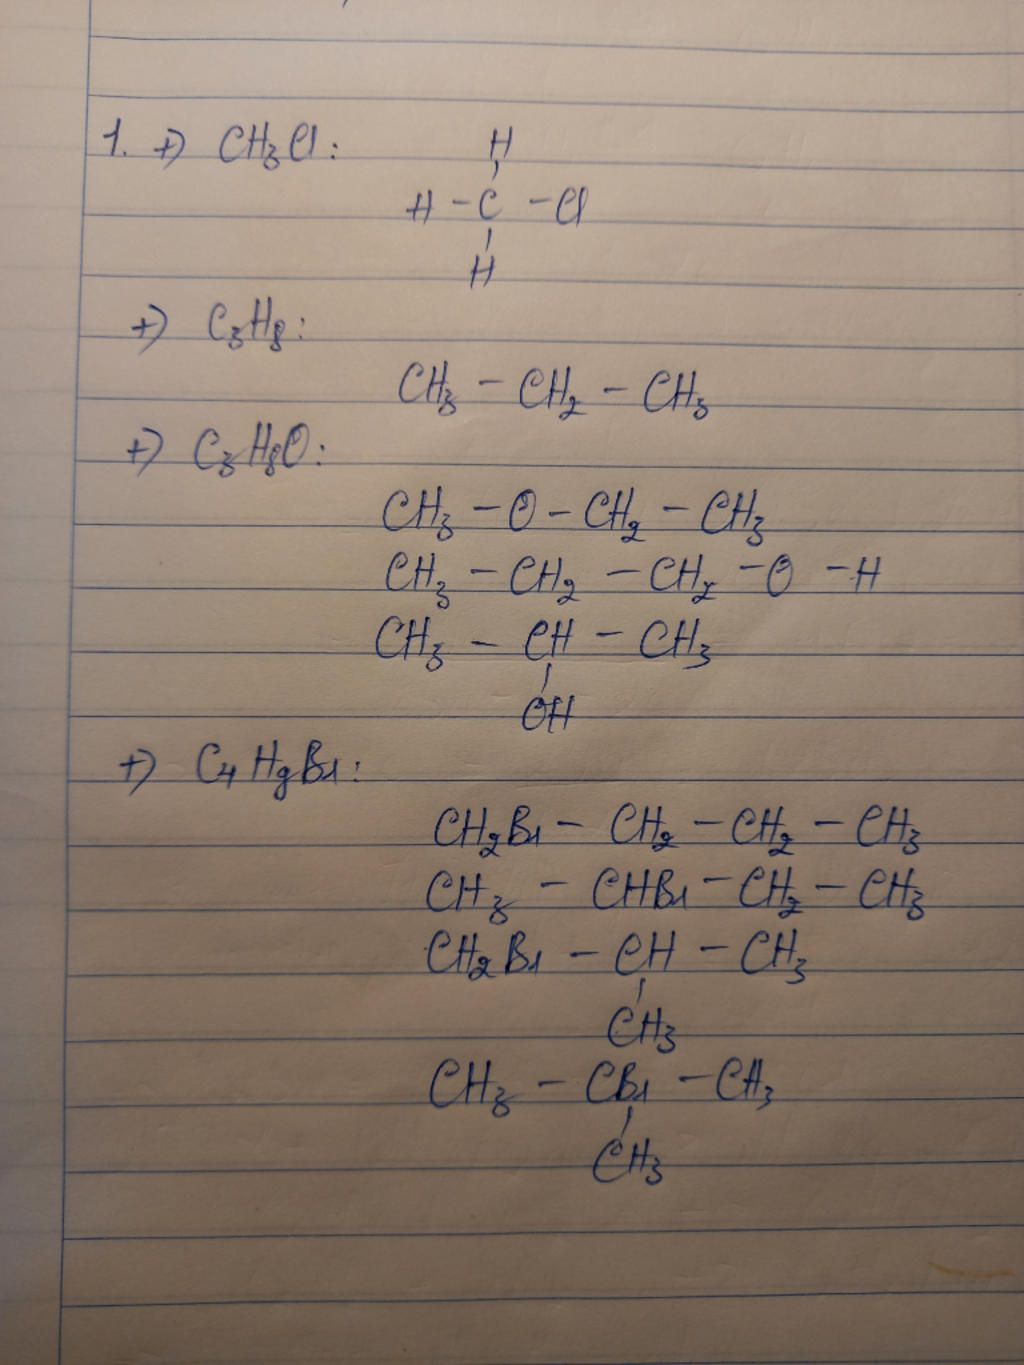 1. +) CH₃Cl:
H
H - C - Cl
H
+) C₃H₈:
CH₃ - CH₂ - CH₃
+) C₃H₈O:
CH₃ - O - CH₂ - CH₃
CH₃ - CH₂ - CH₂ - O - H
CH₃ - CH - CH₃
OH
+) C₄H₉Br:
CH₂Br - CH₂ - CH₂ - CH₃
CH₃ - CHBr - CH₂ - CH₃
CH₂Br - CH - CH₃
CH₃
CH₃ - CBr - CH₃
CH₃